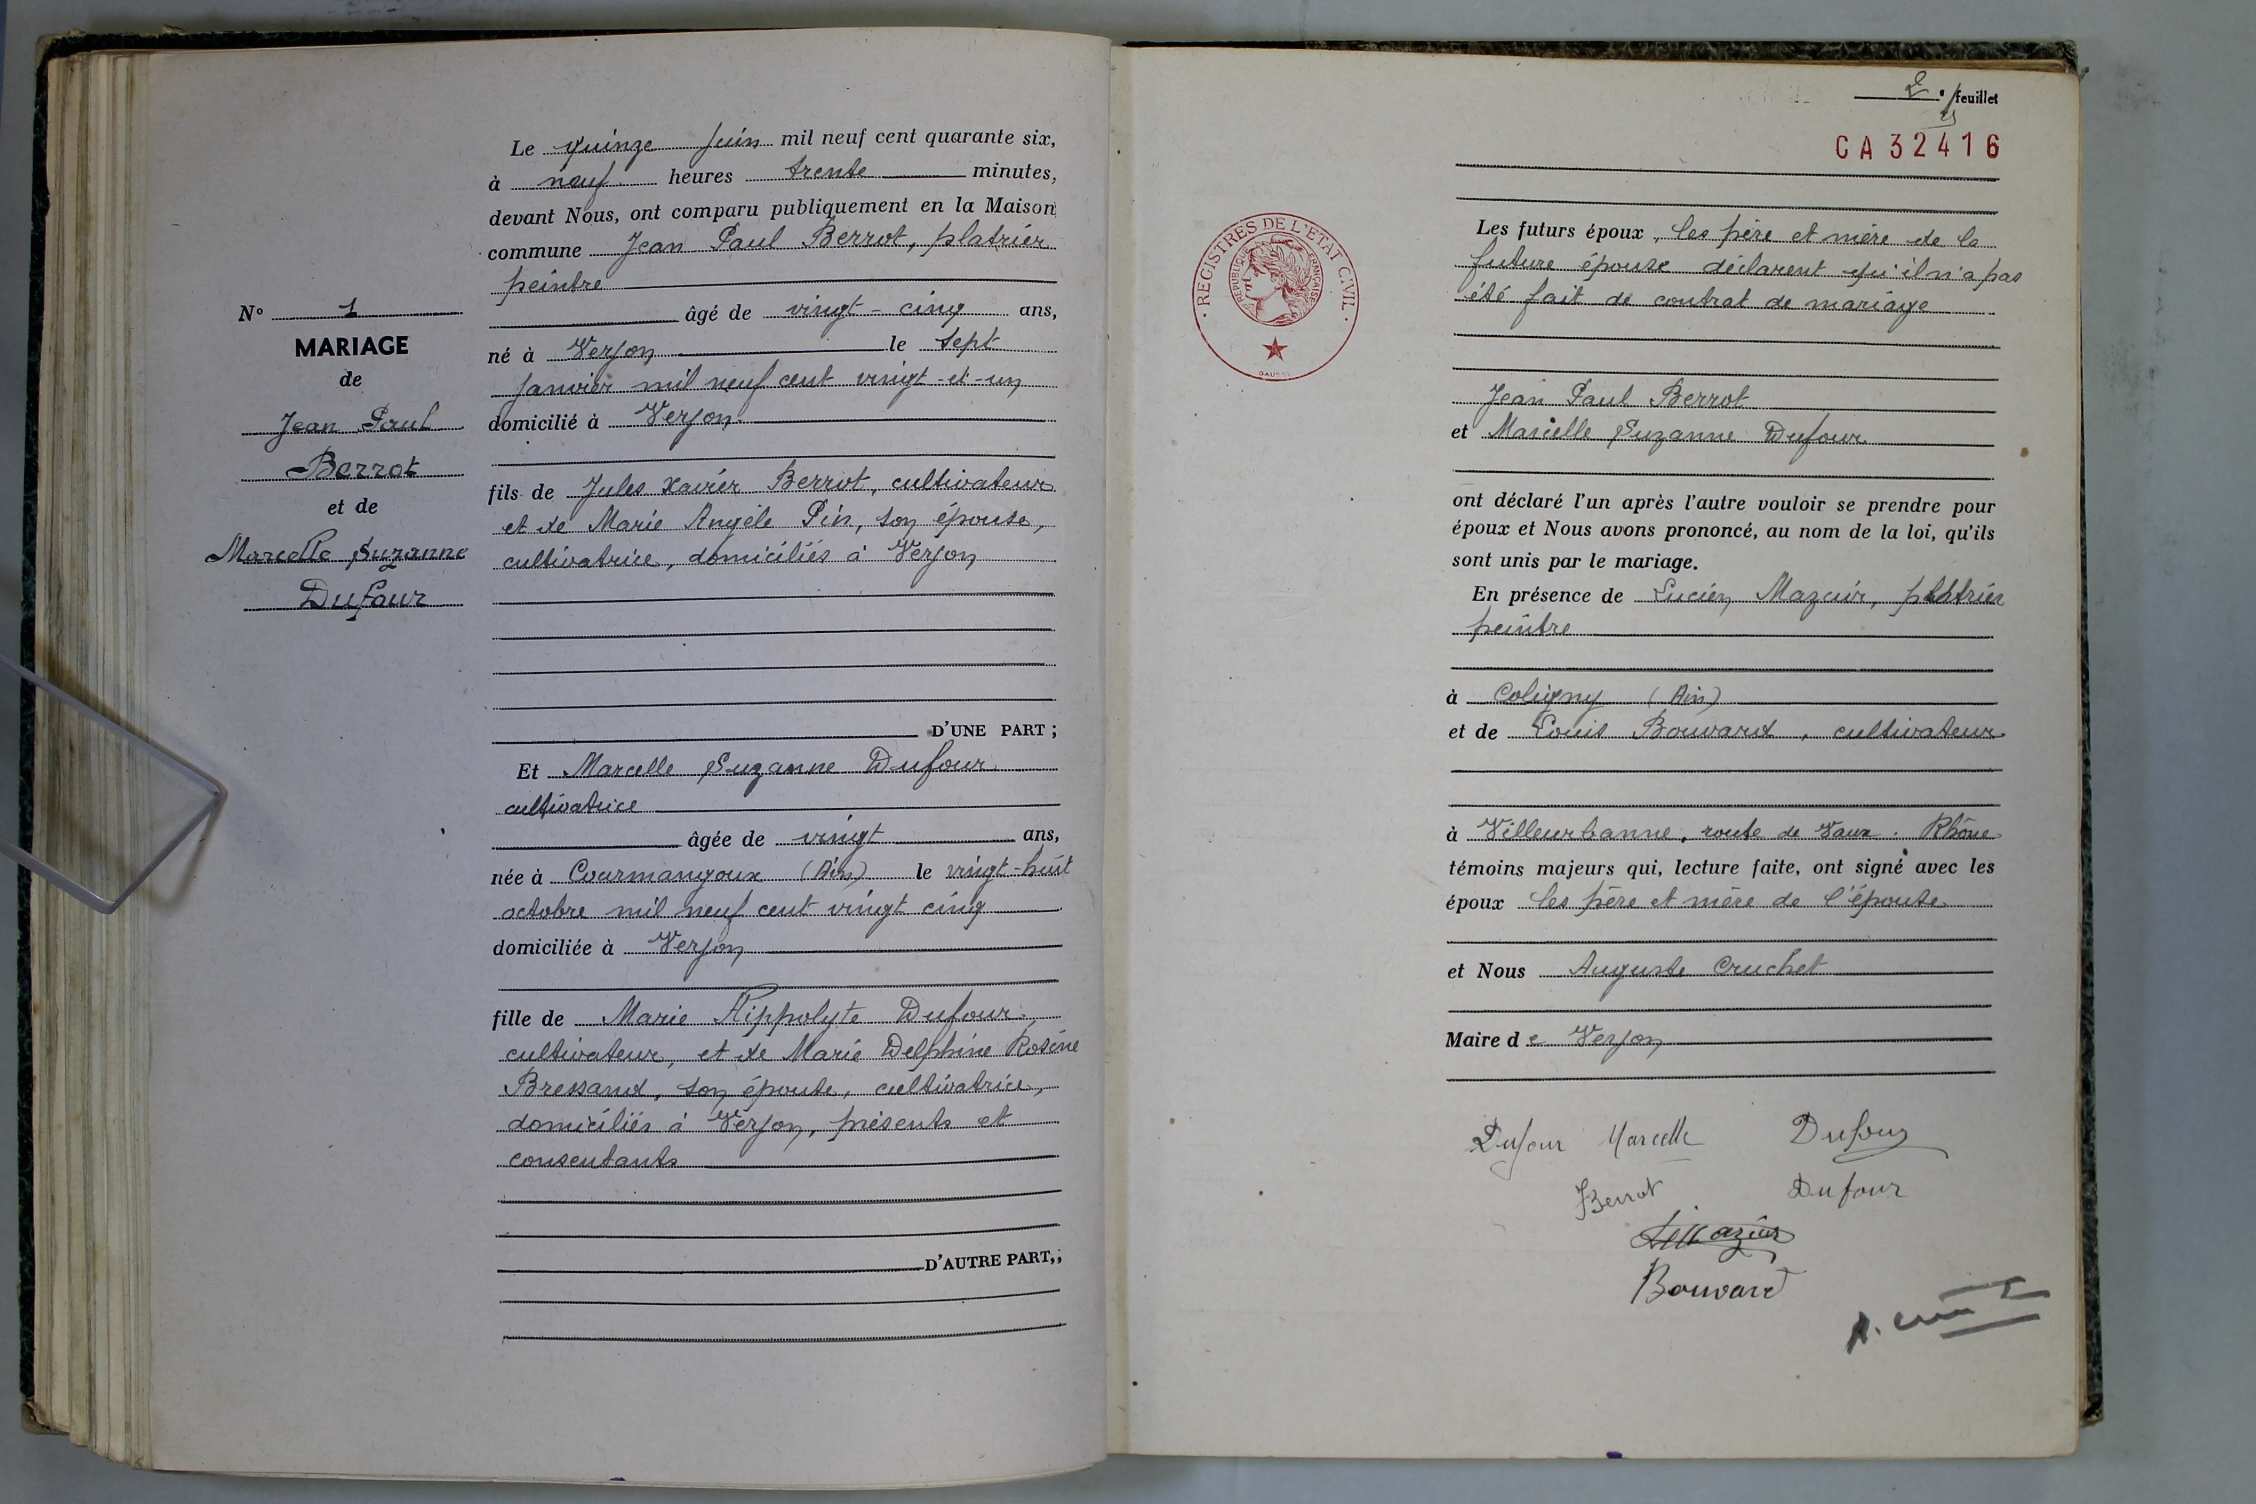 Le quinze Juin mil neuf cent quarante six,
à neuf heures trente minutes,
devant Nous, ont comparu publiquement en la Maison
commune Jean Paul Berrot, platrier
peintre
âgé de vingt-cinq ans,
né à Verjon le sept
janvier mil neuf cent vingt-et-un
domicilié à Verjon
fils de Jules Xavier Berrot, cultivateur
et de Marie Angèle Pin, son épouse,
cultivatrice, domiciliés à Verjon
D'UNE PART ;
Et Marcelle Suzanne Dufour
cultivatrice
âgée de vingt ans,
née à Courmangoux (Ain) le vingt-huit
octobre mil neuf cent vingt cinq
domiciliée à Verjon
fille de Marie Hippolyte Dufour,
cultivateur, et de Marie Delphine Rosine
Bressand, son épouse, cultivatrice,
domiciliés à Verjon, présents et
consentants
D'AUTRE PART,;
N° 1
MARIAGE
de
Jean Paul
Berrot
et de
Marcelle Suzanne
Dufour
2e feuillet
CA32416
REGISTRES DE L'ETAT CIVIL
REPUBLIQUE FRANÇAISE
Les futurs époux, les père et mère de la
future épouse déclarent qu'il n'a pas
été fait de contrat de mariage
Jean Paul Berrot
et Marcelle Suzanne Dufour
ont déclaré l'un après l'autre vouloir se prendre pour
époux et Nous avons prononcé, au nom de la loi, qu'ils
sont unis par le mariage.
En présence de Lucien Mazuir, platrier
peintre
à Coligny (Ain)
et de Louis Bouvard, cultivateur
à Villeurbanne, route de Vaux. Rhône
témoins majeurs qui, lecture faite, ont signé avec les
époux les père et mère de l'épouse
et Nous Auguste Cruchet
Maire de Verjon
Dufour Marcelle Dufour
Berrot Dufour
Bouvard